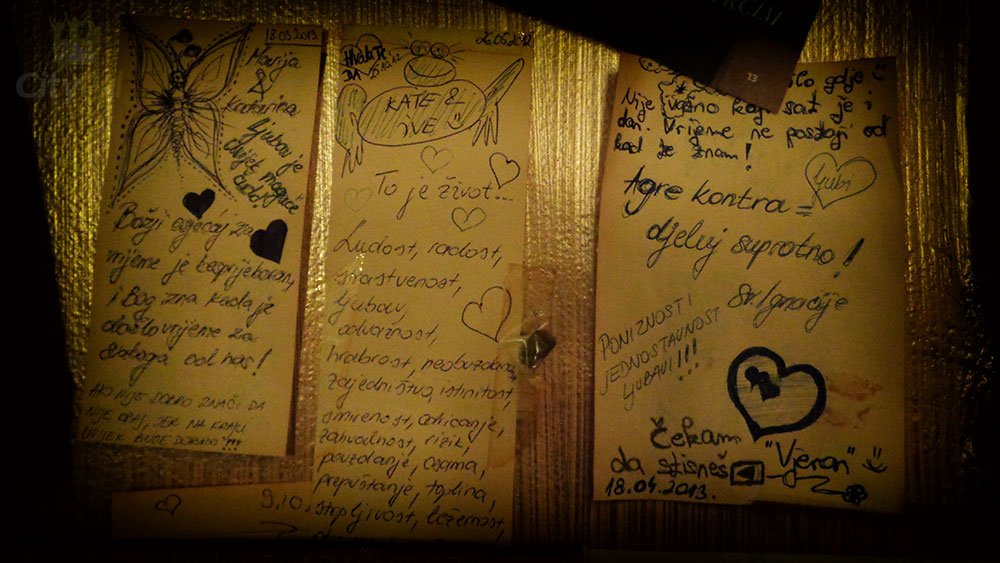 City
18.03.2013
Marija
&
Katarina
Ljubav je
uvijek moguće
čudo!
Božji osjećaj za
vrijeme je besprijekoran,
i Bog zna kada je
došlo vrijeme za
svakoga od nas!
AKO NIJE DOBRO ZNAČI DA
NIJE KRAJ, JER NA KRAJU
UVIJEK BUDE DOBRO"!!!
Hvala Ti
DA
KATE &
IVE
To je život...
Ludost, radost,
strastvenost,
ljubav,
odvažnost,
hrabrost, neobuzdanost,
zajedništvo, istinitost,
smirenost, odricanje,
zahvalnost, rizik,
pouzdanje, osama,
prepuštanje, toplina,
strpljivost, ležernost,
9.10.
13
bilo gdje
Nije važno koji sat je i
dan. Vrijeme ne postoji od
kad te znam!
ljubi
Agre kontra =
djeluj suprotno!
Sv. Ignacije
PONIZNOST I
JEDNOSTAVNOST
LJUBAVI!!!
Čekam
da stisneš
"Vjeran"
18.04.2013.